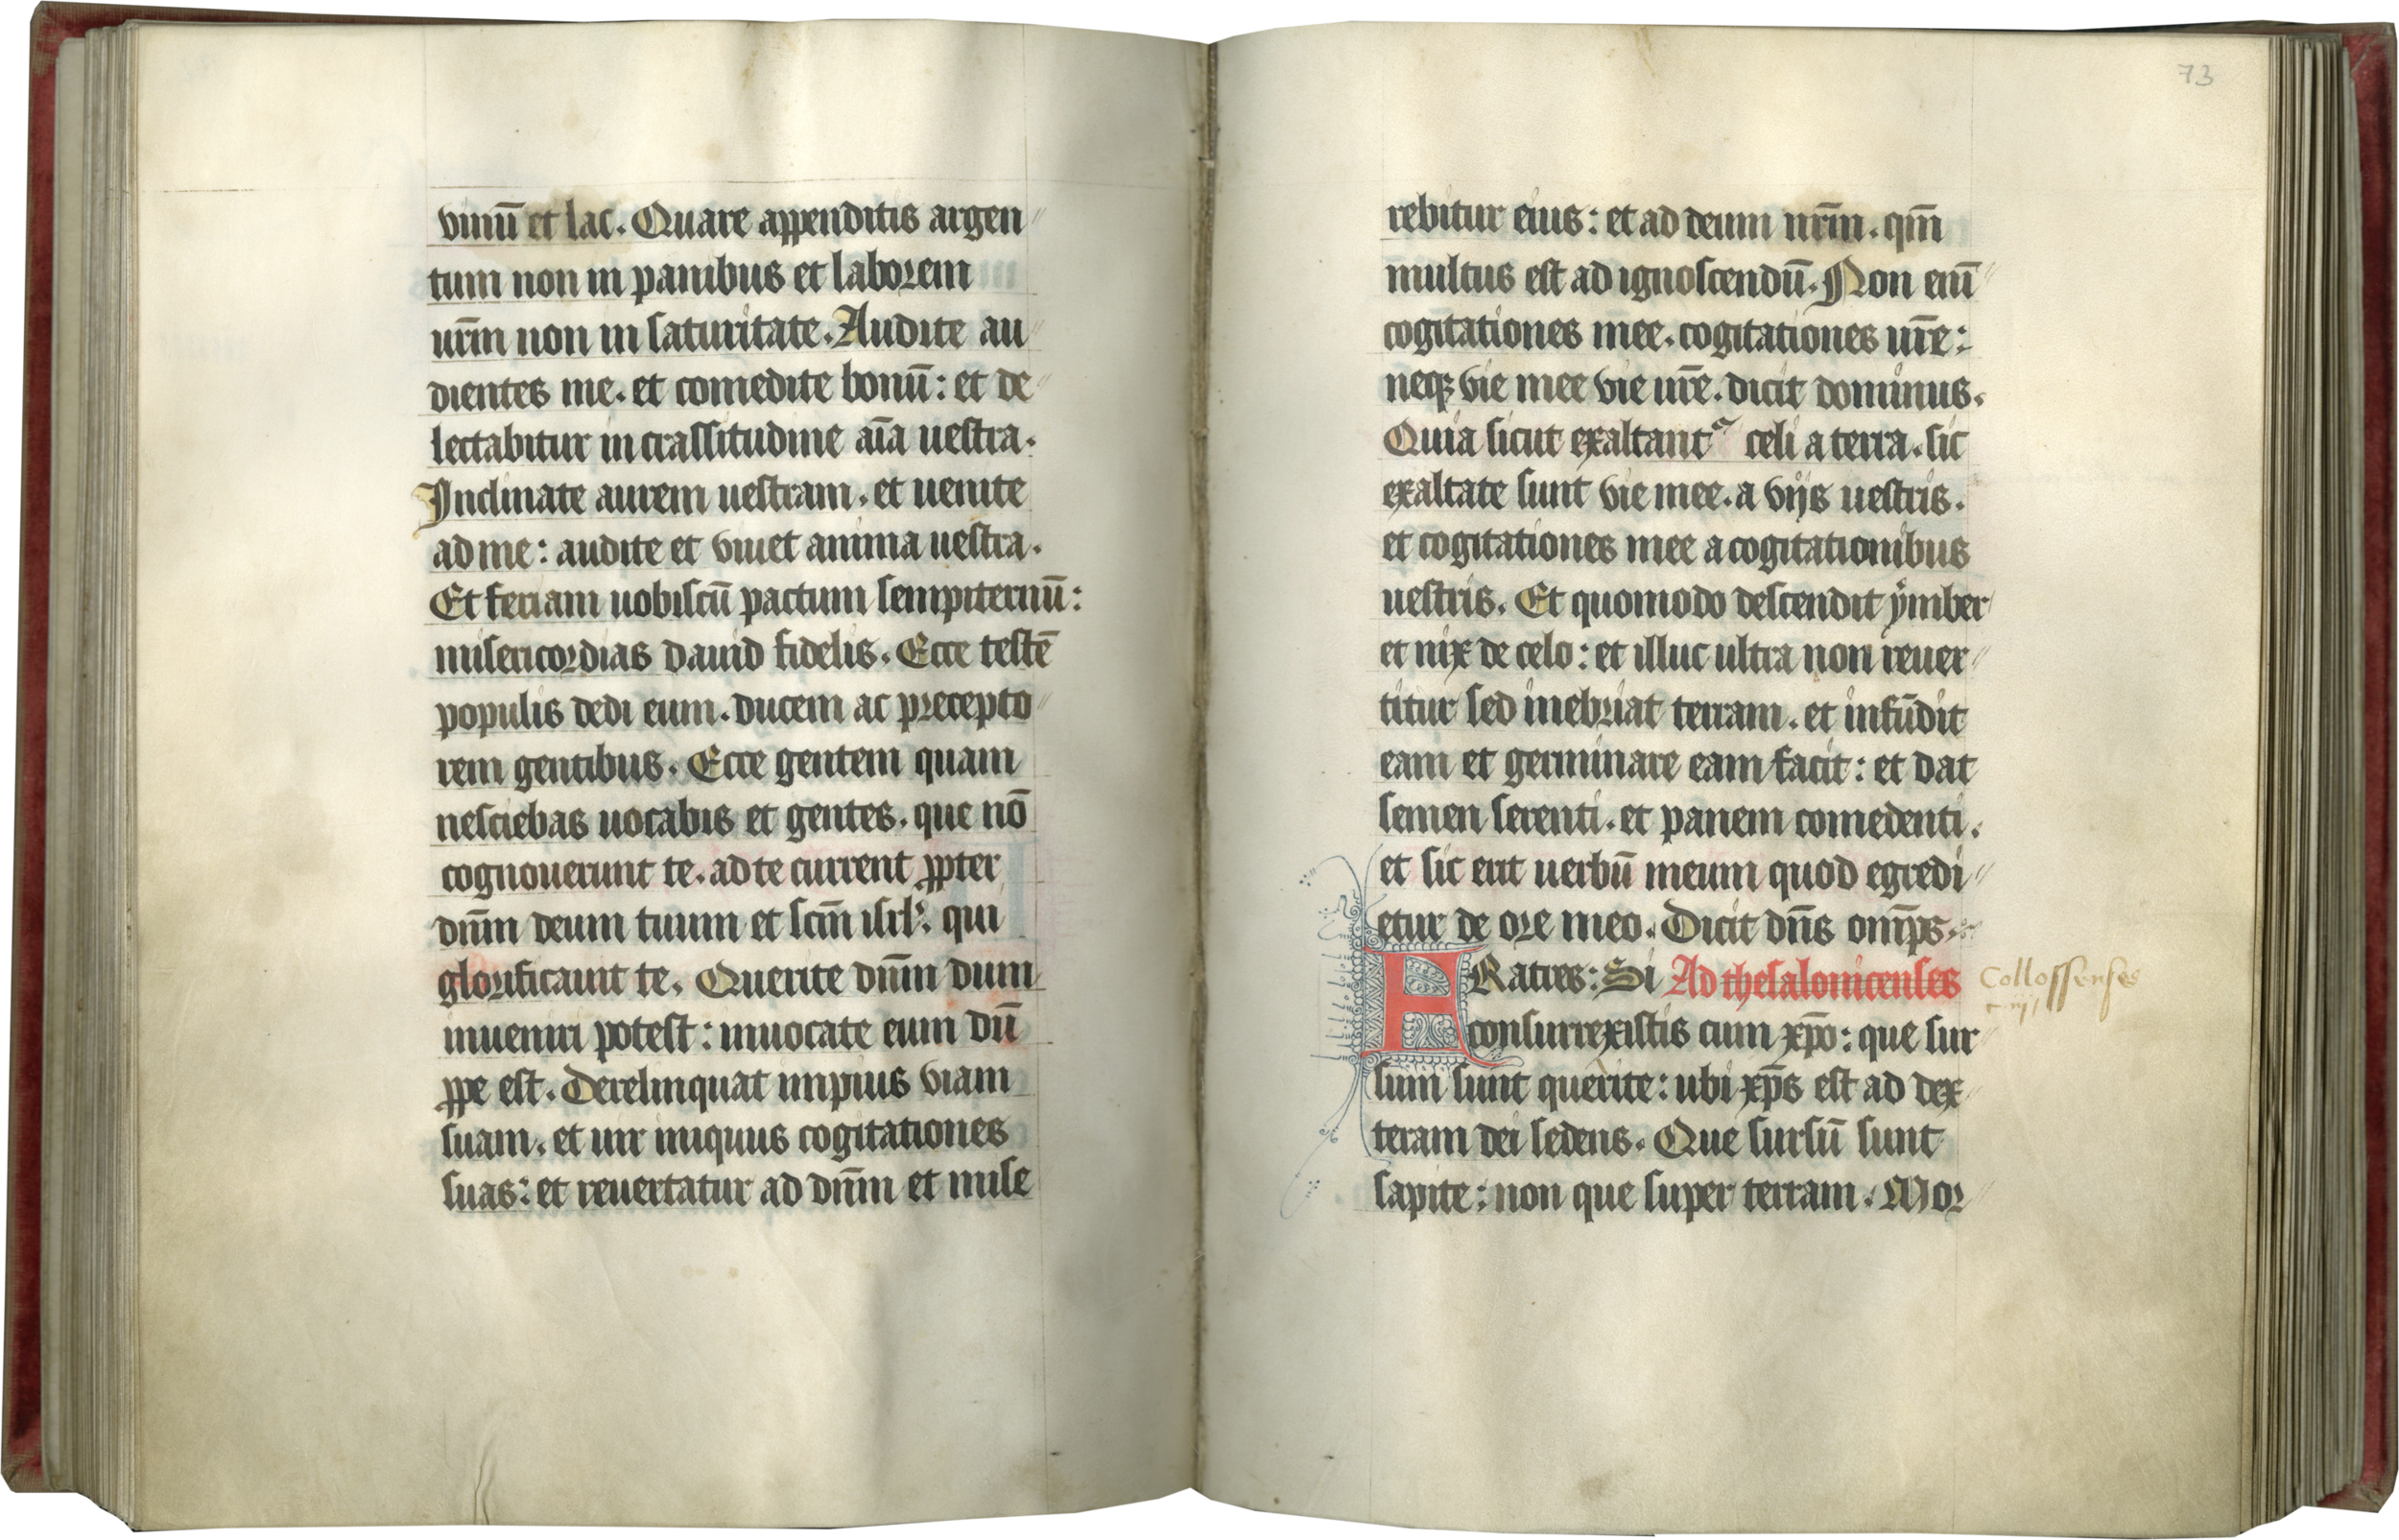 vinū et lac. Quare appenditis argen
tum non in panibus et laborem
urm̄ non in saturitate. Audite au
dientes me. et comedite bonū: et de
lectabitur in crassitudine aīa uestra.
Inclinate aurem uestram. et uenite
ad me: audite et viuet anima uestra.
Et feriam uobiscū pactum sempiternū:
misericordias dauid fidelis. Ecce testē
populis dedi eum. ducem ac precepto
rem gentibus. Ecce gentem quam
nesciebas uocabis et gentes. que nō
cognouerunt te. ad te current ꝓpter
dn̄m deum tuum et scm̄ isrl': qui
glorificauit te. Querite dn̄m dum
inueniri potest: inuocate eum dū
ꝓpe est. Derelinquat impius viam
suam. et uir iniquus cogitationes
suas: et reuertatur ad dn̄m et mise
73
rebitur eius: et ad deum nrm̄. qm̄
multus est ad ignoscendū. Non eni̅
cogitationes mee. cogitationes ur̄e:
neqꝫ vie mee vie ur̄e. dicit dominus.
Quia sicut exaltant᷑ celi a terra. sic
exaltate sunt vie mee. a vijs uestris.
et cogitationes mee a cogitationibus
uestris. Et quomodo descendit ẏmber
et nix de celo: et illuc ultra non reuer
titur sed inebriat terram. et infūdit
eam et germinare eam facit: et dat
semen serenti. et panem comedenti.
et sic erit uerbū meum quod egredi
etur de ore meo. Dicit dn̄s om̄ps.
FRatres: Si Ad thesalonicenses Collossenses
c. iij
consurrexistis cum xp̄o: que sur
sum sunt querite: ubi xp̄s est ad dex
teram dei sedens. Que sursū sunt
sapite: non que super terram. Mor